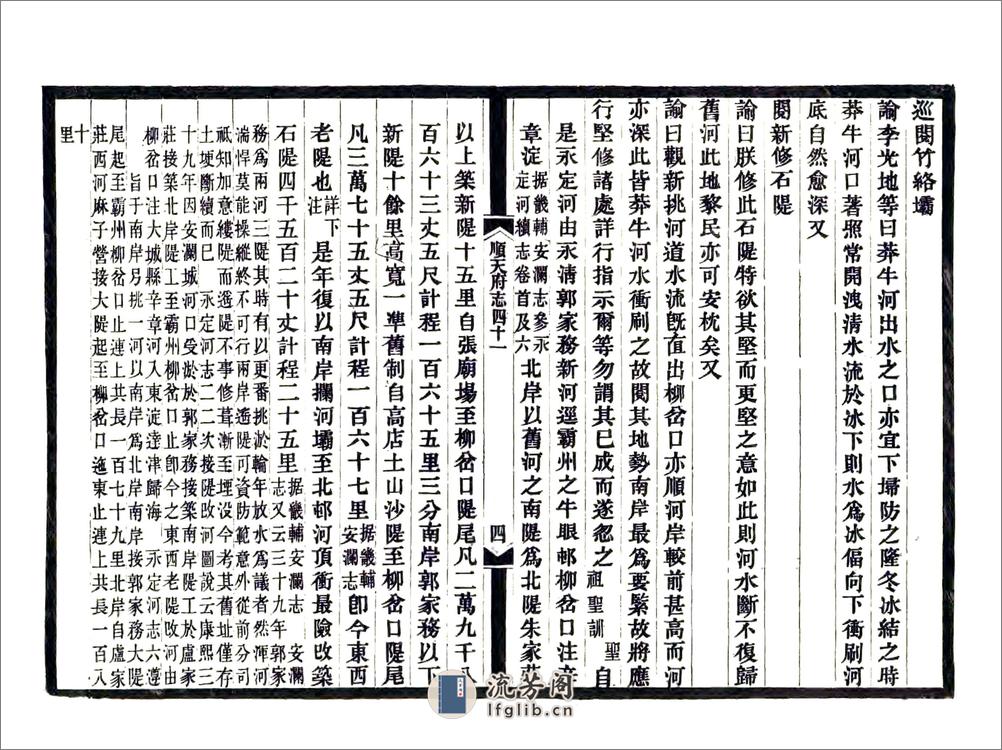 巡閱竹絡壩
諭李光地等曰莽牛河出水之口亦宜下埽防之隆冬冰結之時
莽牛河口著照常開洩清水流於冰下則水為冰偪向下衝刷河
底自然愈深又
閱新修石隄
諭曰朕修此石隄特欲其堅而更堅之意如此則河水斷不復歸
舊河此地黎民亦可安枕矣又
諭曰觀新挑河道水流旣直出柳岔口亦順河岸較前甚高而河
亦深此皆莽牛河水衝刷之故閱其地勢南岸最為要緊故將應
行堅修諸處詳行指示爾等勿謂其已成而遂忽之聖祖聖訓自
是永定河由永清郭家務新河逕霸州之牛眼邨柳岔口注辛
章淀据畿輔安瀾志參永定河續志卷首及六北岸以舊河之南隄為北隄朱家莊
順天府志四十一
四
以上築新隄十五里自張廟場至柳岔口隄尾凡二萬九千八
百六十三丈五尺計程一百六十五里三分南岸郭家務以下
新隄十餘里高寬一凖舊制自高店土山沙隄至柳岔口隄尾
凡三萬七十五丈五尺計程一百六十七里据畿輔安瀾志卽今東西
老隄也詳下注是年復以南岸攔河壩至北邨河頂衝最險改築
石隄四千五百二十丈計程二十五里据畿輔安瀾志安瀾志又云三十九年郭家
務為兩河三隄其時有以更番挑淤輪年放水為議者然渾河
湍悍莫能操縱終不可行兩岸遙隄可資防範意外從前分司
祗知加意縷隄而遙隄不事修葺漸至埋沒今考其舊址僅存
土埂斷續而已 永定河志二二次接隄改河圖說云康熙三
十九年因安瀾城河口受淤於郭家務接築南岸隄工於盧家
莊接築北岸隄工至霸州柳岔口止卽今之東西老隄改河由
柳岔口注大城縣辛章河入東淀達津歸海 永定河志六遵
旨于南岸另挑一河以南岸為北岸南岸接郭家務大隄
尾起至霸州柳岔口止連上共長一百七十九里北岸自盧家
莊西河麻子營接大隄起至柳岔口迤東止連上共長一百八
十里
流芳閣
lfglib.cn